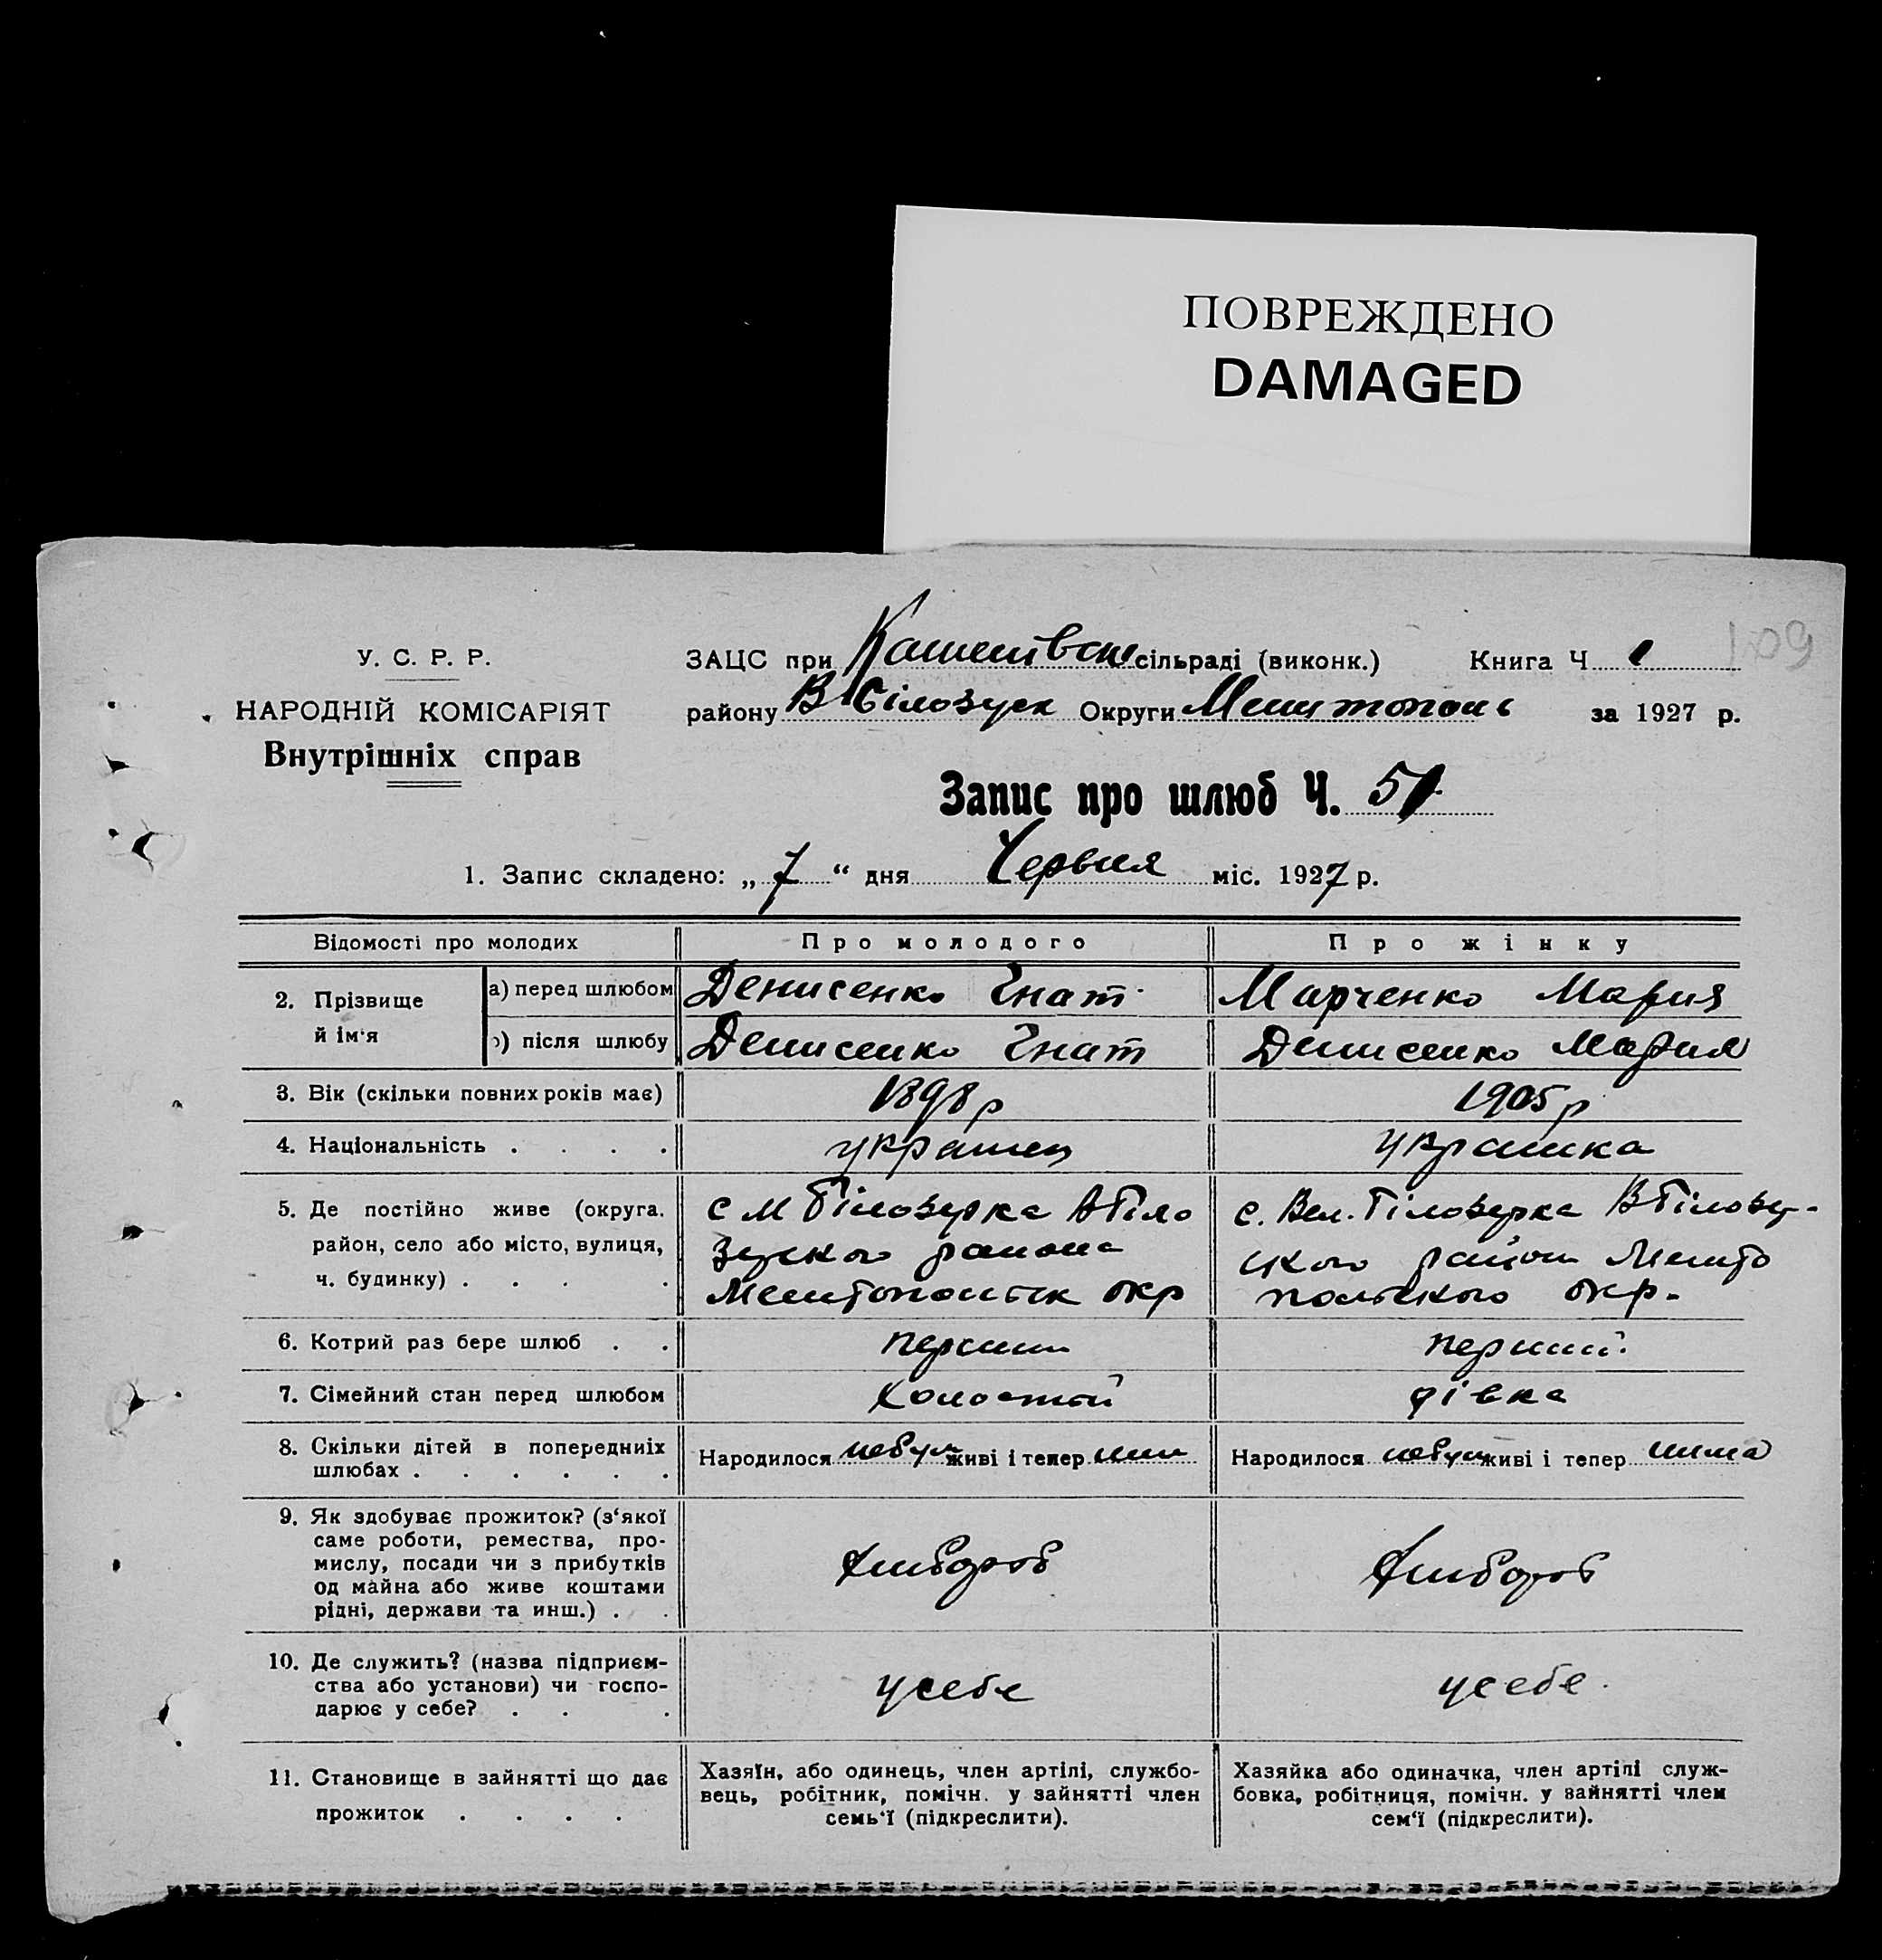 ПОВРЕЖДЕНО
DAMAGED
109
У. С. Р. Р.
НАРОДНІЙ КОМІСАРІЯТ
Внутрішніх справ
ЗАЦС при сільраді (виконк.) Книга Ч 1
району В Білозусk Округи Мелитополь за 1927 р.
Запис про шлюб Ч. 51
1. Запис складено: „ 7 “ дня Червня міс. 1927 р.
Відомості про молодих Про молодого Про жінку
2. Прізвище й ім‘я
а) перед шлюбом Денисенко Гнат Марченко Мария
) після шлюбу Денисенко Гнат Денисенко Мария
3. Вік (скільки повних років має) 1898 р 1905 р
4. Національність . . . . украинец украинка
5. Де постійно живе (округа,
район, село або місто, вулиця,
ч. будинку) . . . .
с М Білозерка ВБіло
зуского района
Мелитопольск окр
с. Вел. Білозерка ВБілозу-
цкого район Мелито
польского окр.
6. Котрий раз бере шлюб . . перший перший
7. Сімейний стан перед шлюбом холостий дівка
8. Скільки дітей в попередниіх
шлюбах . . . . . .
Народилося небул живі і тепер
Народилося небул живі і тепер нима
9. Як здобуває прожиток? (з‘якої
саме роботи, ремества, про-
мислу, посади чи з прибутків
од майна або живе коштами
рідні, держави та инш.) . .
хлибороб
хлибороб
10. Де служить? (назва підприєм-
ства або установи) чи госпо-
дарює у себе? . . .
у себе
у себе.
11. Становище в зайнятті що дає
прожиток . . . .
Хазяїн, або одинець, член артілі, службо-
вець, робітник, помічн. у зайнятті член
семь‘ї (підкреслити).
Хазяйка або одиначка, член артілі служ-
бовка, робітниця, помічн. у зайнятті член
сем‘ї (підкреслити).